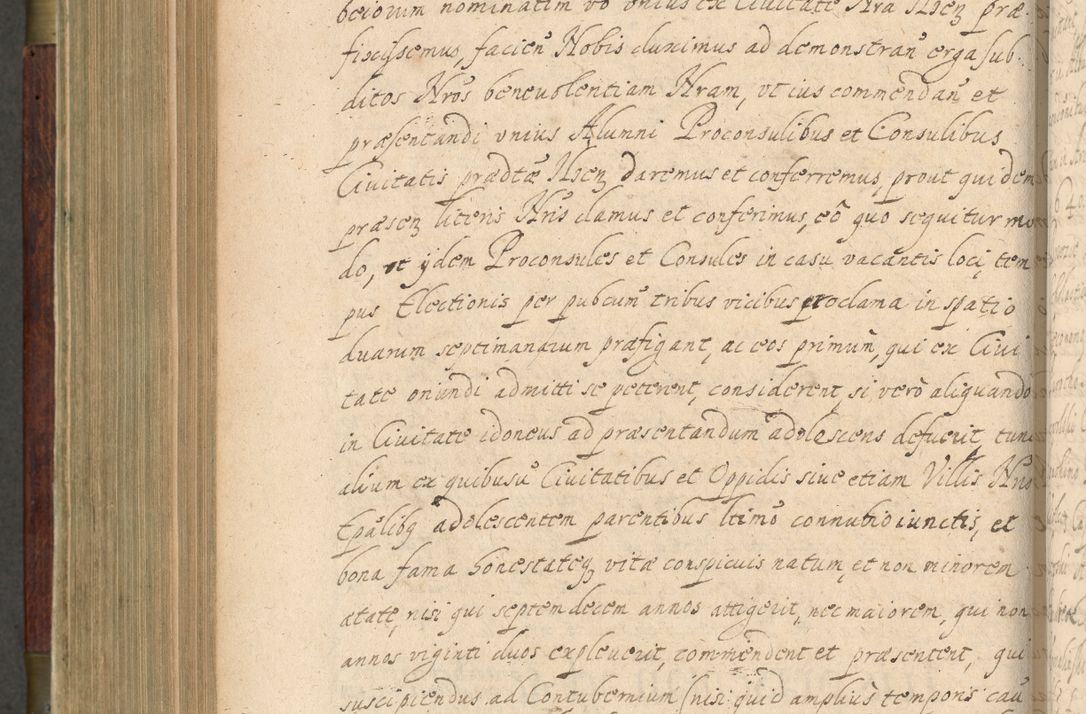 beiorum nominatim vō vnius ex Ciuitate Nra Nsen̄ præ
ficissemus, facien̄ Nobis duximus ad demonstran̄ erga sub
ditos Nrōs beneuolentiam Nram, vt ius commendan̄ et
præsentandi vnius Alumni Proconsulibus et Consulibus
Ciuitatis prædtæ Nsen̄ daremus et conferremus, prout quidem
præsen̄ literis Nris damus et conferimus, eō quo sequitur mo
do, vt ijdem Proconsules et Consules in casu vacantis loci, tem
pus Electionis per pubcum tribus vicibus proclama in spatio
duarum septimanarum præfigant, ac eos primum, qui ex Ciui
tate oriundi admitti se peterent, considerent, si verò aliquando
in Ciuitate idoneus ad præsentandum adolescens defuerit, tunc
alium ex quibusū Ciuitatibus et Oppidis siue etiam Villis Nris
Epālibq adolescentem parentibus ltimō connubio iunctis, et
bona fama honestateq vitæ conspicuis natum, et non minorem
ætate, nisi qui septem decem annos attigerit, nec maiorem, qui non
annos viginti duos expleuerit, commendent et præsentent, qui
suscipiendus ad Contubernium (nisi quid amplius temporis cau